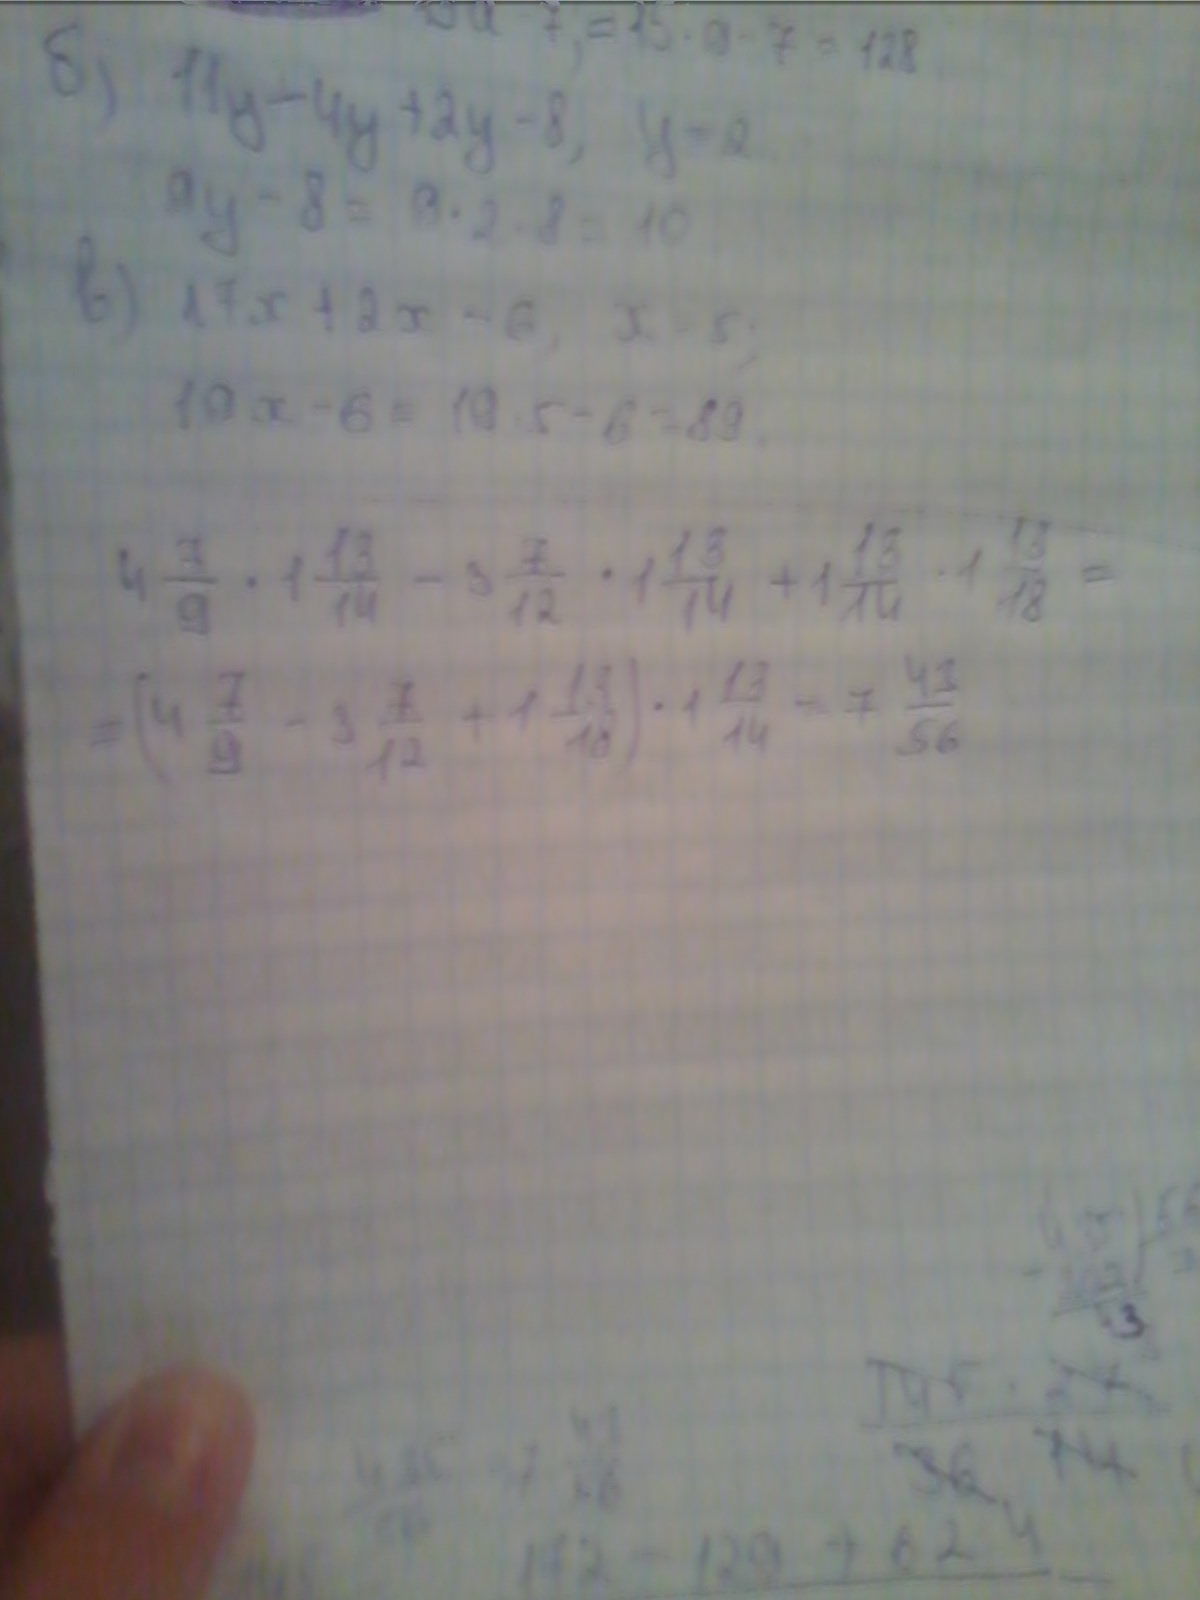 - 7, = 15 · 9 - 7 = 128
б) 11y - 4y + 2y - 8, y = 2
9y - 8 = 9 · 2 - 8 = 10
в) 17x + 2x - 6, x = 5;
19x - 6 = 19 · 5 - 6 = 89.
4 7/9 · 1 13/14 - 3 7/12 · 1 13/14 + 1 13/14 · 1 13/18 =
= (4 7/9 - 3 7/12 + 1 13/18) · 1 13/14 = 7 43/56
43
145 · 27
36 14
7 43/56
172 - 129 + 62